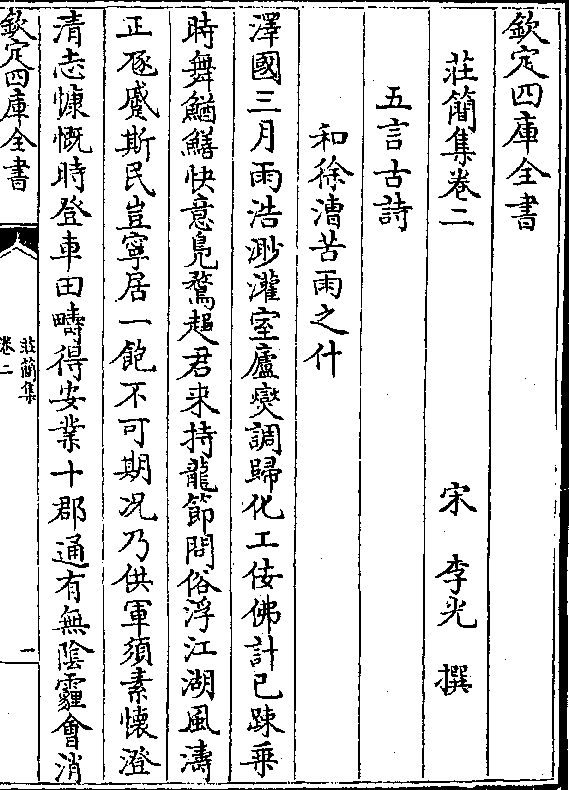 欽定四庫全書
莊簡集卷二 宋 李光 撰
五言古詩
和徐漕苦雨之什
澤國三月雨浩渺灌室廬爕調歸化工佞佛計已踈乗
時舞鰌鱔快意鳬鶩趨君来持龍節問俗浮江湖風濤
正豗蹙斯民豈寧居一飽不可期况乃供軍須素懷澄
清志慷慨時登車田疇得安業十郡通有無陰霾會消
欽定四庫全書
莊簡集
卷二
一